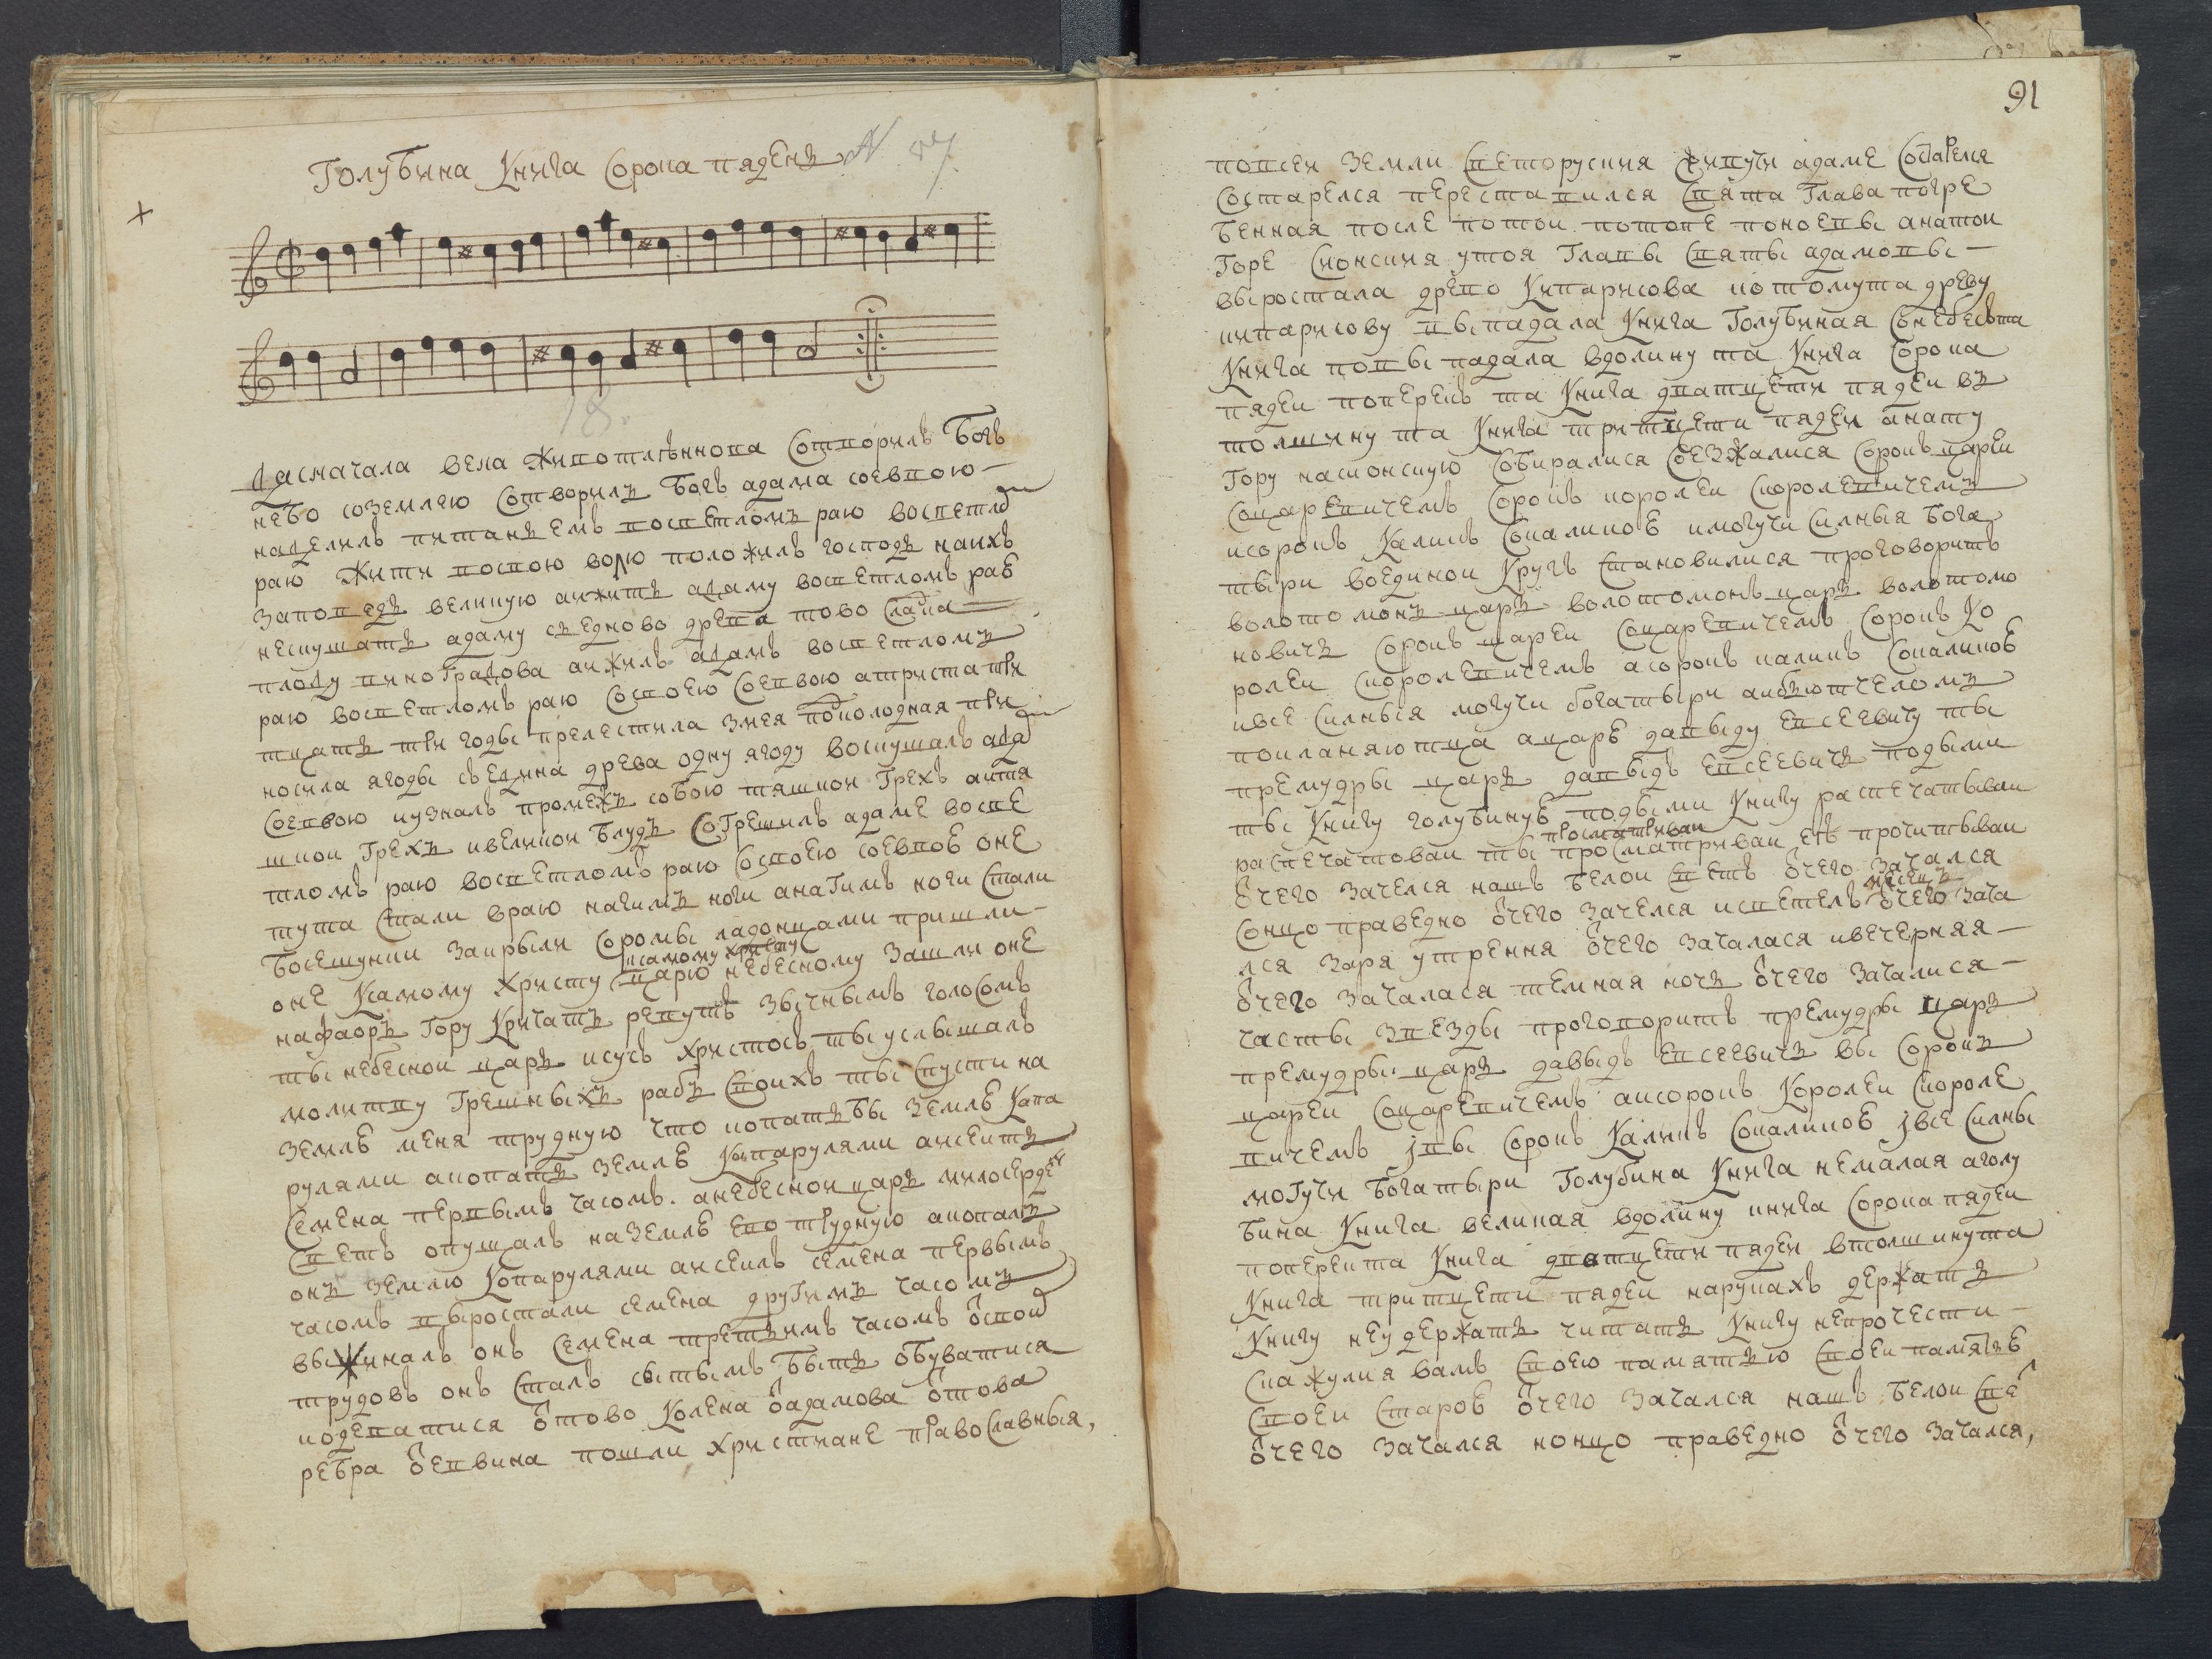 Голубина Книга Сорока пяденъ N 57
18.
Да сначала века животлѣннова Сотворилъ Богъ
небо соземлею Сотворилъ Богъ адама соеввою
наделилъ питанъемъ восветломъ раю восветло
раю Жити восвою волю положилъ господь наихъ
Заповедь великую анжить адаму восветломъ раѣ
нескушать адаму съедново древа тово слатка
плоду виноградова анжилъ адамъ восветломъ
раю восветломъ раю Сосвоею Соеввою атриста три
тцать три годы прелестила Змея подколодная при
носила ягоды съедина древа одну ягоду воскушалъ ада
Соеввою иузналъ промежъ собою тяшкои Грехъ аитя
шкои Грехъ ивеликои Блудъ СоГрешилъ адаме восве
тломъ раю восветломъ раю Соспоею соеввоѣ оне
тута Стали враю нагимъ ноги анаГимъ ноги Стали
Босешунки Закрыли Соромы ладонцами пришли
ксамому христу
оне Ксамому христу царю небесному Зашли оне
нафаоръ Гору Кричатъ ревутъ Зычнымъ голосомъ
ты небеснои царь исусъ христосъ ты услышалъ
молитву Грешныхъ рабъ Своихъ ты Спусти на
Землѣ меня трудную что копать бы Землѣ Капа
рулями акопать Землѣ Капарулями ансеить
Семена первымъ часомъ. анебеснои царь милосерде
Светъ опущалъ наЗемлѣ ево трудную акопалъ
онъ Землю Копарулями ансеилъ семена первымъ
часомъ выростали семена другимъ часомъ
выжиналъ онъ Семена третьимъ часомъ ѿспои
трудовъ онъ Сталъ сытымъ быть обуватися
иодеватися ѿтово Колена ѿадамова ѿтова
ребра ѿеввина пошли христиане православныя,
91
повсеи Земли Светорусиня Скипучи адаме Состареля
Состарелся переставился Свята Глава погре
бенная после потои потопе поноевы анатои
Горе Сионсиня утоя Главы Святы адамовы
выростала древо Кипарисова ктомута древу
кипарисову выпадала Книга Голубиная Снебесьта
Книга повыпадала вдолину та Книга Сорока
пядеи поперекъ та Книга дватцети пядеи въ
толшину та Книга тритцети пядеи анату
Гору насионскую Собиралися Соезжалися Сорокъ цареи
Соцаревичемъ Сорокъ королеи Скоролевичемъ
исорокъ Калинъ Сокалиноѣ имогучи Силныя бога
тыри воединои Кругъ Становилися проговоритъ
волотомонъ царь волотомонъ царь волотомо
новичъ Сорокъ цареи Соцаревичемъ Сорокъ Ко
ролеи Скоролевичемъ асорокъ калинъ Сокалиноѣ
ивсе Силныя могучи богатыри анбьютчеломъ
покланяютца ацарѣ давыду евсеевичу ты
премудры царь давыдъ евсеевичъ подыми
ты Книгу голубинуѣ подыми Книгу распечатываи
просматриваи
распечатоваи ты просматриваи еѣ прочитываи
ѿчего Зачелся нашъ Белои Светъ ѿчего Зачался
месецъ
Сонцо праведно ѿчего Зачелся исветелъ ѿчего Зача
лся Заря утрення ѿчего Зачалася ивечерняя
ѿчего Зачалася темная ночь ѿчего Зачалися
часты Звезды проговоритъ премудры царь
премудры царь давыдъ евсеевичъ вы Сорокъ
цареи Соцаревичемъ аисорокъ Королеи Скороле
вичемъ јвы Сорокъ Калинъ Сокалиноѣ јвсе Силны
моГучи Богатыри Голубина Книга немалая аголу
бина Книга великая вдолину книга Сорока пядеи
поперекта Книга дватцети пядеи втолшинута
Книга тритцети пядеи нарукахъ держать
Книгу неудержать читать Книгу непрочести
Скажулия вамъ Своею паматью Своеи паматьѣ
Своеи Староѣ ѿчего Зачался нашъ белои Све
ѿчего Зачался концо праведно ѿчего Зачался,